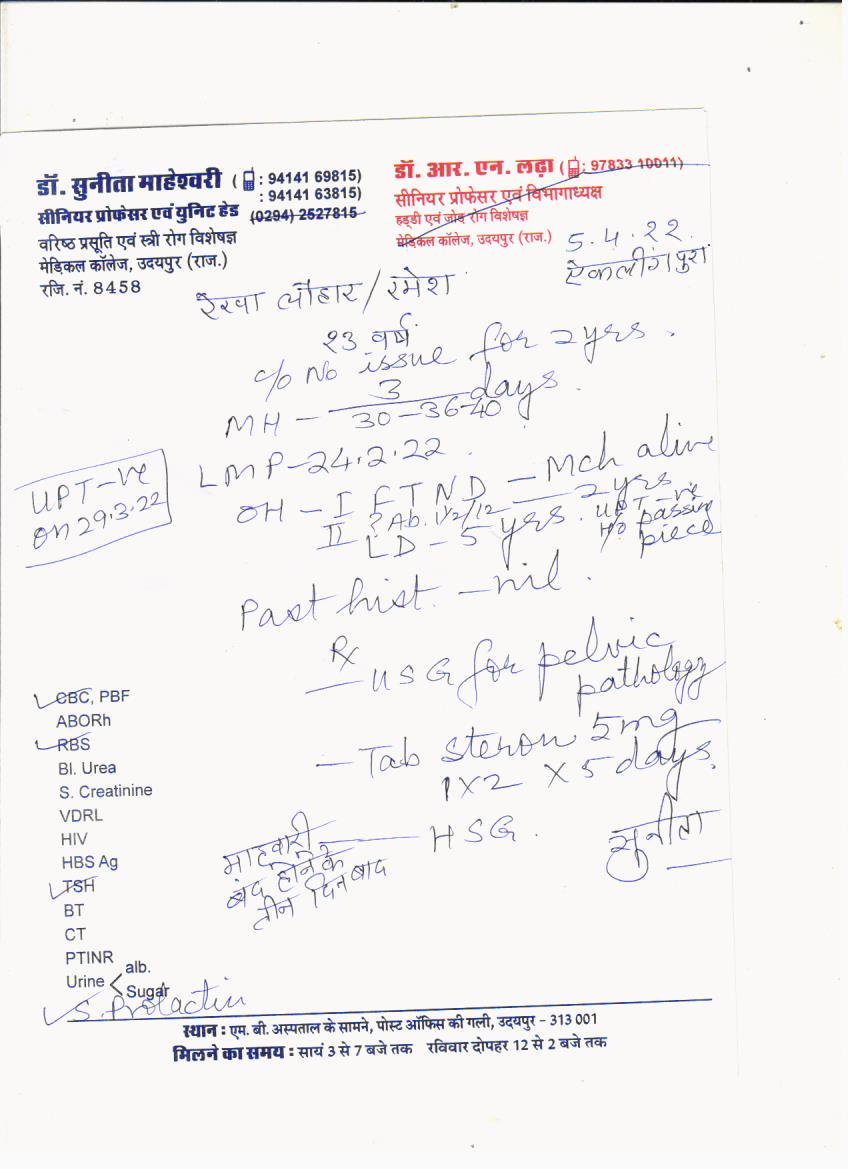 डॉ. सुनीता माहेश्वरी ( : 94141 69815)
: 94141 63815)
सीनियर प्रोफेसर एवं युनिट हेड (0294) 2527815
वरिष्ठ प्रसूति एवं स्त्री रोग विशेषज्ञ
मेडिकल कॉलेज, उदयपुर (राज.)
रजि. नं. 8458
डॉ. आर. एन. लढ़ा ( : 97833 10011)
सीनियर प्रोफेसर एवं विभागाध्यक्ष
हड्डी एवं जोड़ रोग विशेषज्ञ
मेडिकल कॉलेज, उदयपुर (राज.)
5.4.22.
ऐकलींगपुरा
रेखा लौहार / रमेश
23 वर्ष
c/o No issue for 2yrs.
MH - 3 days.
30-36-40
LMP-24.2.22.
UPT-ve
on 29.3.22
OH - I FTND - Mch alive
2 yrs
II ? Ab. 1½/12 UPT-ve
H/o passing
piece
LD - 5 yrs.
Past hist. - nil.
Rx
- USG for pelvic
pathology
- Tab steron 5mg
1x2 x 5 days.
माहवारी
बंद होने के
तीन दिन बाद
- HSG.
सुनीता
CBC, PBF
ABORh
RBS
Bl. Urea
S. Creatinine
VDRL
HIV
HBS Ag
TSH
BT
CT
PTINR
Urine < alb.
Sugar
S. Prolactin
स्थान : एम. बी. अस्पताल के सामने, पोस्ट ऑफिस की गली, उदयपुर - 313 001
मिलने का समय : सायं 3 से 7 बजे तक रविवार दोपहर 12 से 2 बजे तक